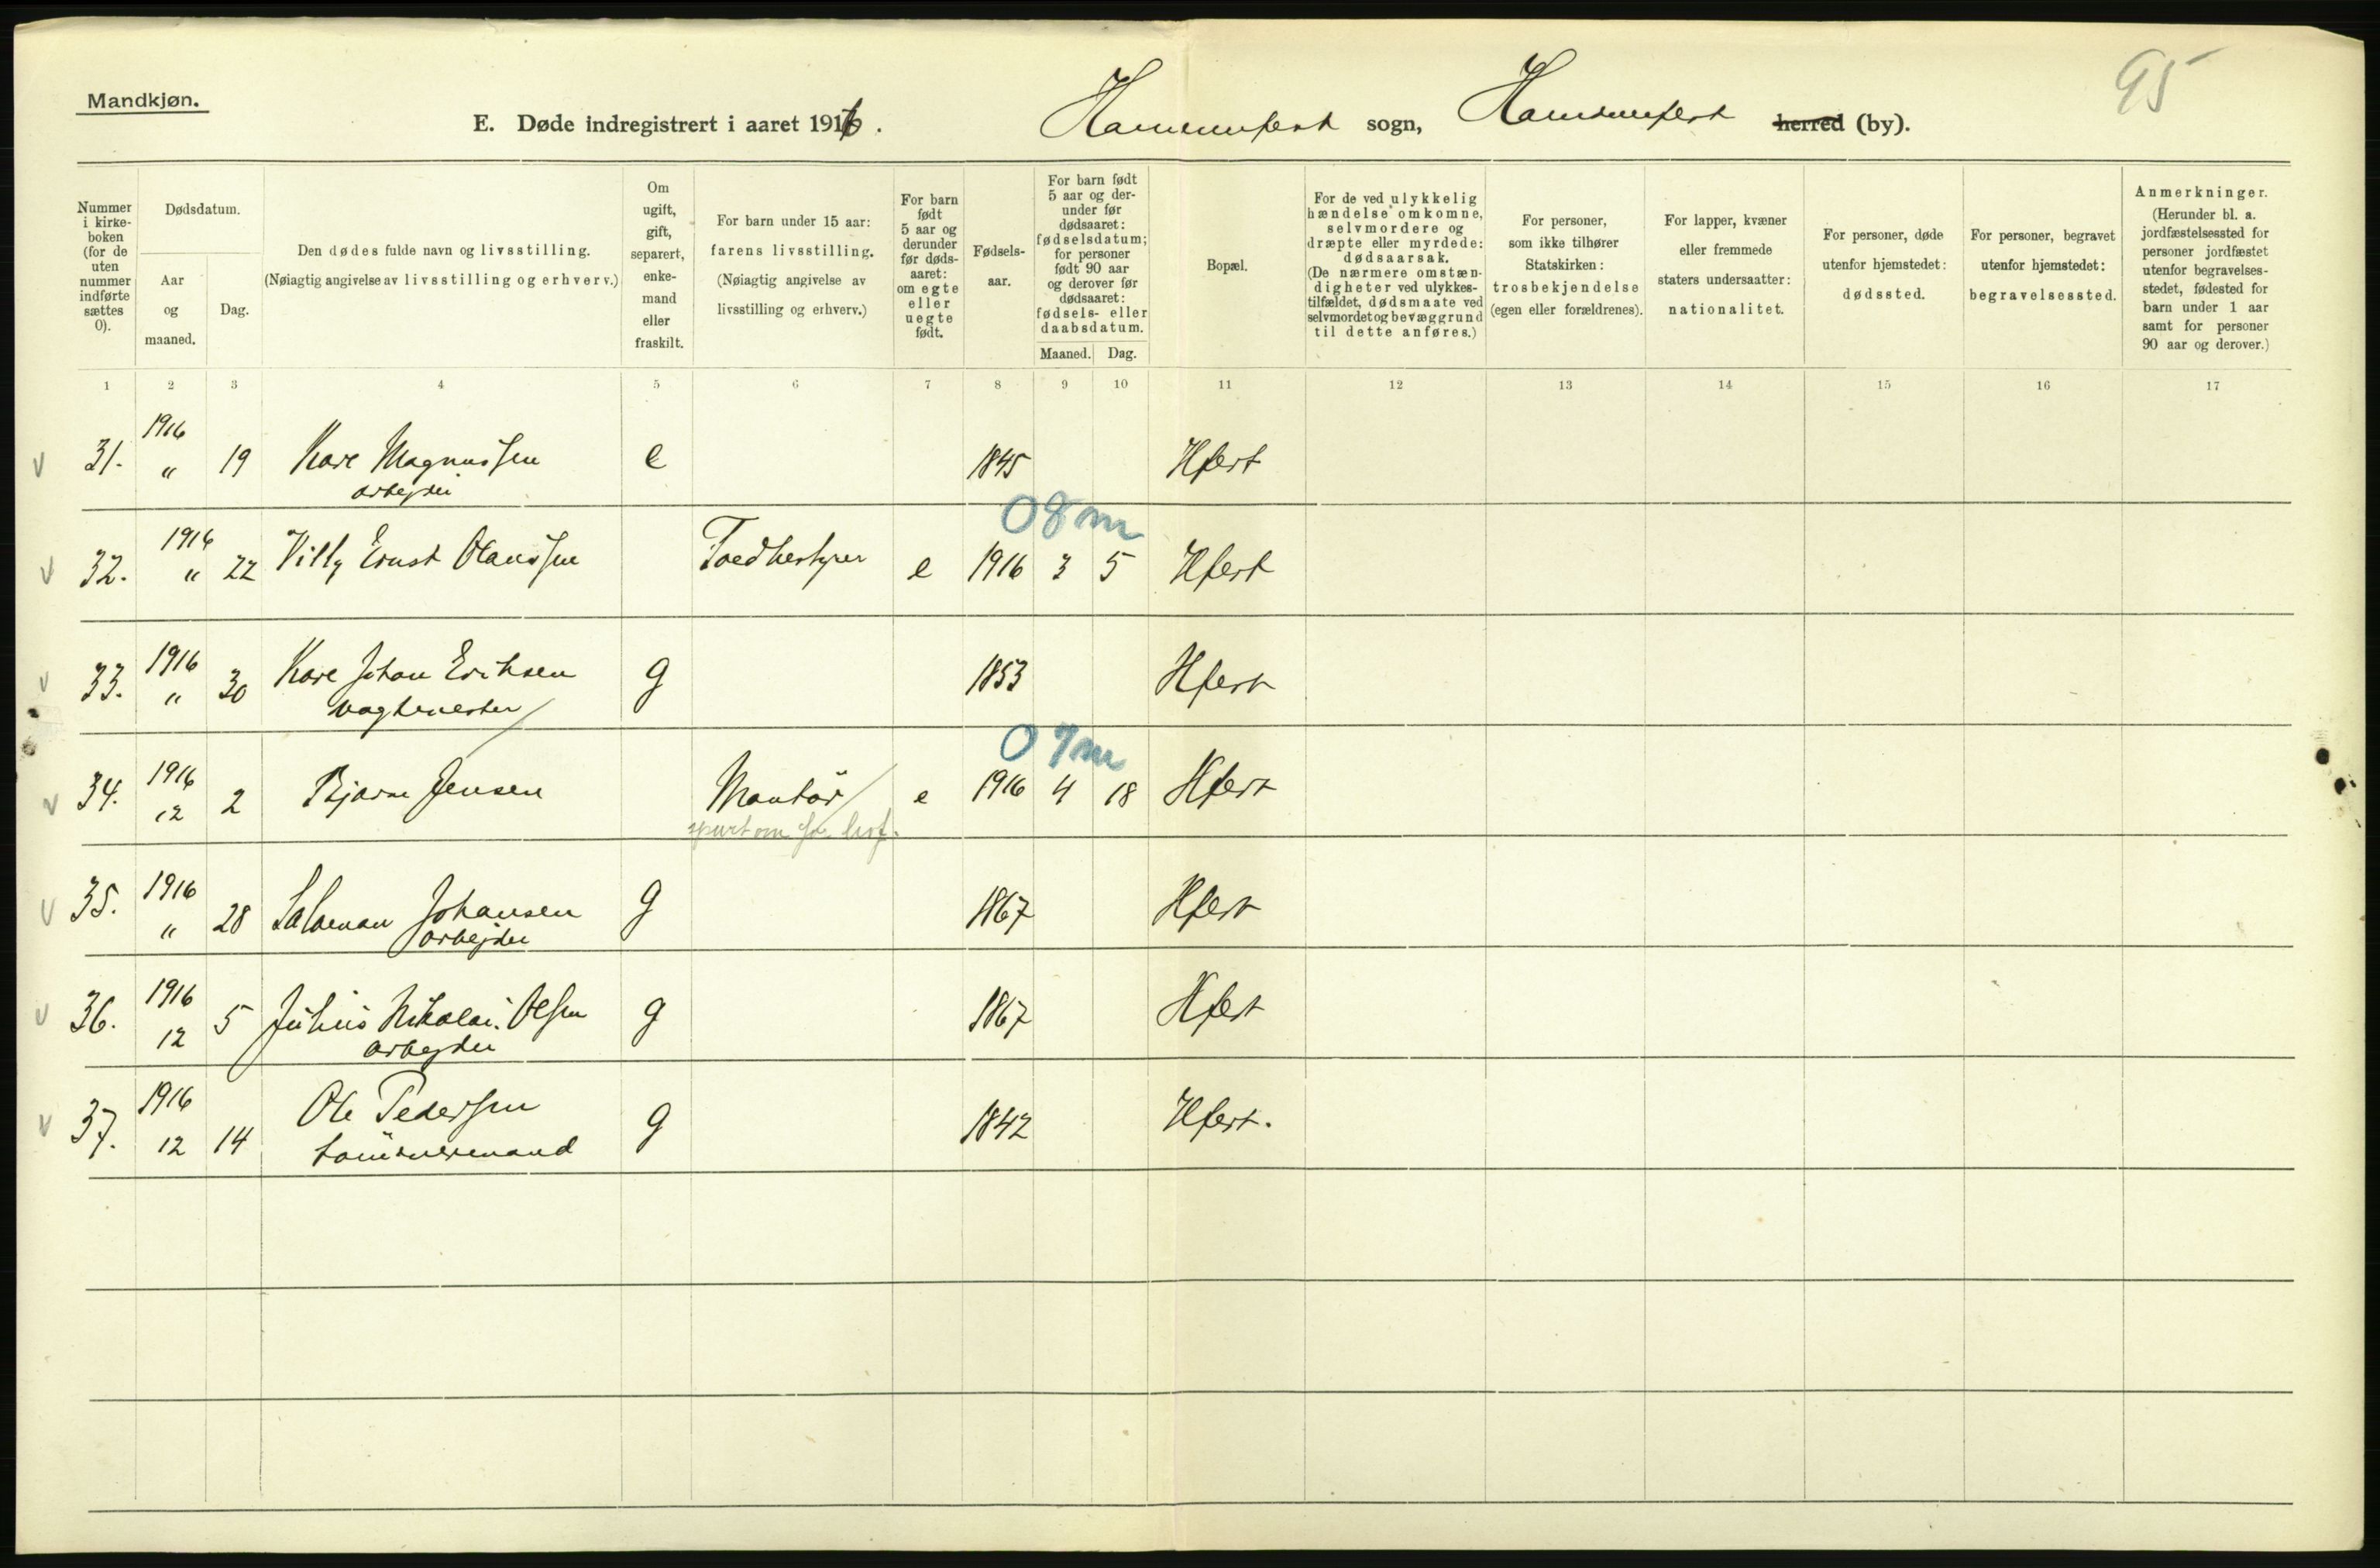 Mandkjøn.
95
E. Døde indregistrert i aaret 1916.
Hammerfest sogn, Hammerfest herred (by).
Nummer i kirke-boken (for de uten nummer indførte sættes 0).
Dødsdatum.
Aar og maaned.
Dag.
Den dødes fulde navn og livsstilling.
(Nøiagtig angivelse av livsstilling og erhverv.)
Om ugift, gift, separert, enke-mand eller fraskilt.
For barn under 15 aar: farens livsstilling. (Nøiagtig angivelse av livsstilling og erhverv.)
For barn født 5 aar og derunder før døds-aaret: om egte eller uegte født.
Fødsels-aar.
For barn født 5 aar og der-under før dødsaaret: fødselsdatum; for personer født 90 aar og derover før dødsaaret: fødsels- eller daabsdatum.
Maaned. Dag.
Bopæl.
For de ved ulykkelig hændelse omkomne, selvmordere og dræpte eller myrdede: dødsaarsak. (De nærmere omstæn-digheter ved ulykkes-tilfældet, dødsmaate ved selvmordet og bevæggrund til dette anføres.)
For personer, som ikke tilhører Statskirken: trosbekjendelse (egen eller forældrenes).
For lapper, kvæner eller fremmede staters undersaatter: nationalitet.
For personer, døde utenfor hjemstedet: dødssted.
For personer, begravet utenfor hjemstedet: begravelsessted.
Anmerkninger. (Herunder bl. a. jordfæstelsessted for personer jordfæstet utenfor begravelses-stedet, fødested for barn under 1 aar samt for personer 90 aar og derover.)
1 2 3 4 5 6 7 8 9 10 11 12 13 14 15 16 17
1916
31. " 19 Kare Magnussen e 1845 Hfest
arbejder
0 8 m
1916
32. " 22 Villy Ernst Olaussen e 1916 3 5 Hfest
1916
33. " 30 Kare Johan Eriksen g 1853 Hfest
vagtmester
0 7 m
1916
34. 12 2 Bjarne Jensen Montør e 1916 4 18 Hfest
spurt om
1916
35. " 28 Johansen g 1867 Hfest
arbejder
1916
36. 12 5 Julius Nikolai Olsen g 1867 Hfest
arbejder
1916
37. 12 14 Ole Pedersen g 1842 Hfest.
tømmermand